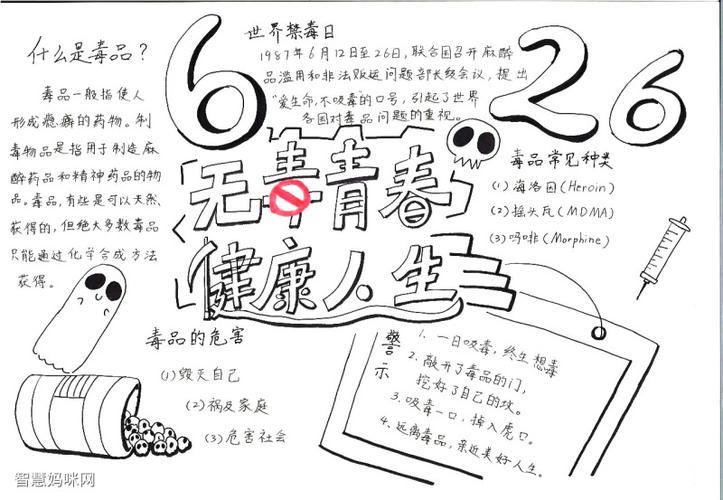 什么是毒品？
毒品一般指使人
形成瘾癖的药物。制
毒物品是指用于制造麻
醉药品和精神药品的物
品。毒品，有些是可以天然
获得的，但绝大多数毒品
只能通过化学合成方法
获得。
6 26
世界禁毒日
1987年6月12日至26日，联合国召开麻醉
品滥用和非法贩运问题部长级会议，提出
“爱生命，不吸毒”的口号，引起了世界
各国对毒品问题的重视。
无毒青春
健康人生
毒品常见种类
(1)海洛因(Heroin)
(2)摇头瓦(MDMA)
(3)吗啡(Morphine)
毒品的危害
(1)毁灭自己
(2)祸及家庭
(3)危害社会
警示
1. 一日吸毒，终生想毒
2. 敲开了毒品的门，
挖好了自己的坟。
3. 吸毒一口，掉入虎口。
4. 远离毒品，亲近美好人生。
智慧妈咪网